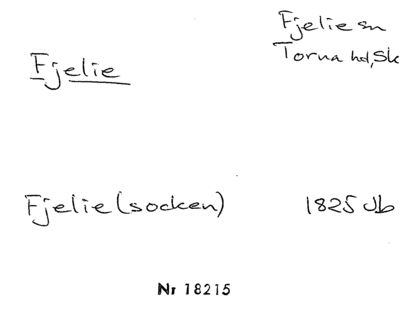 Fjelie sn
Torna hd, Sk
Fjelie
Fjelie (socken) 1825 Jb
Nr 18215